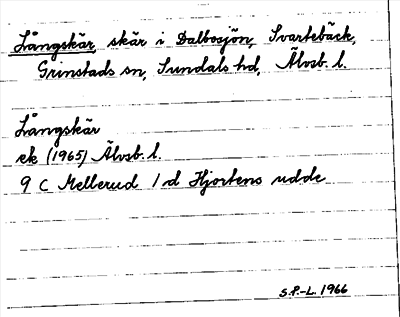 Långskär, skär i Dalbosjön, Svartebäck,
Grinstads sn, Sundals hd, Älvsb. l.
Långskär
ek (1965) Älvsb. l.
9 C Mellerud 1 d Hjortens udde
S.P.-L. 1966